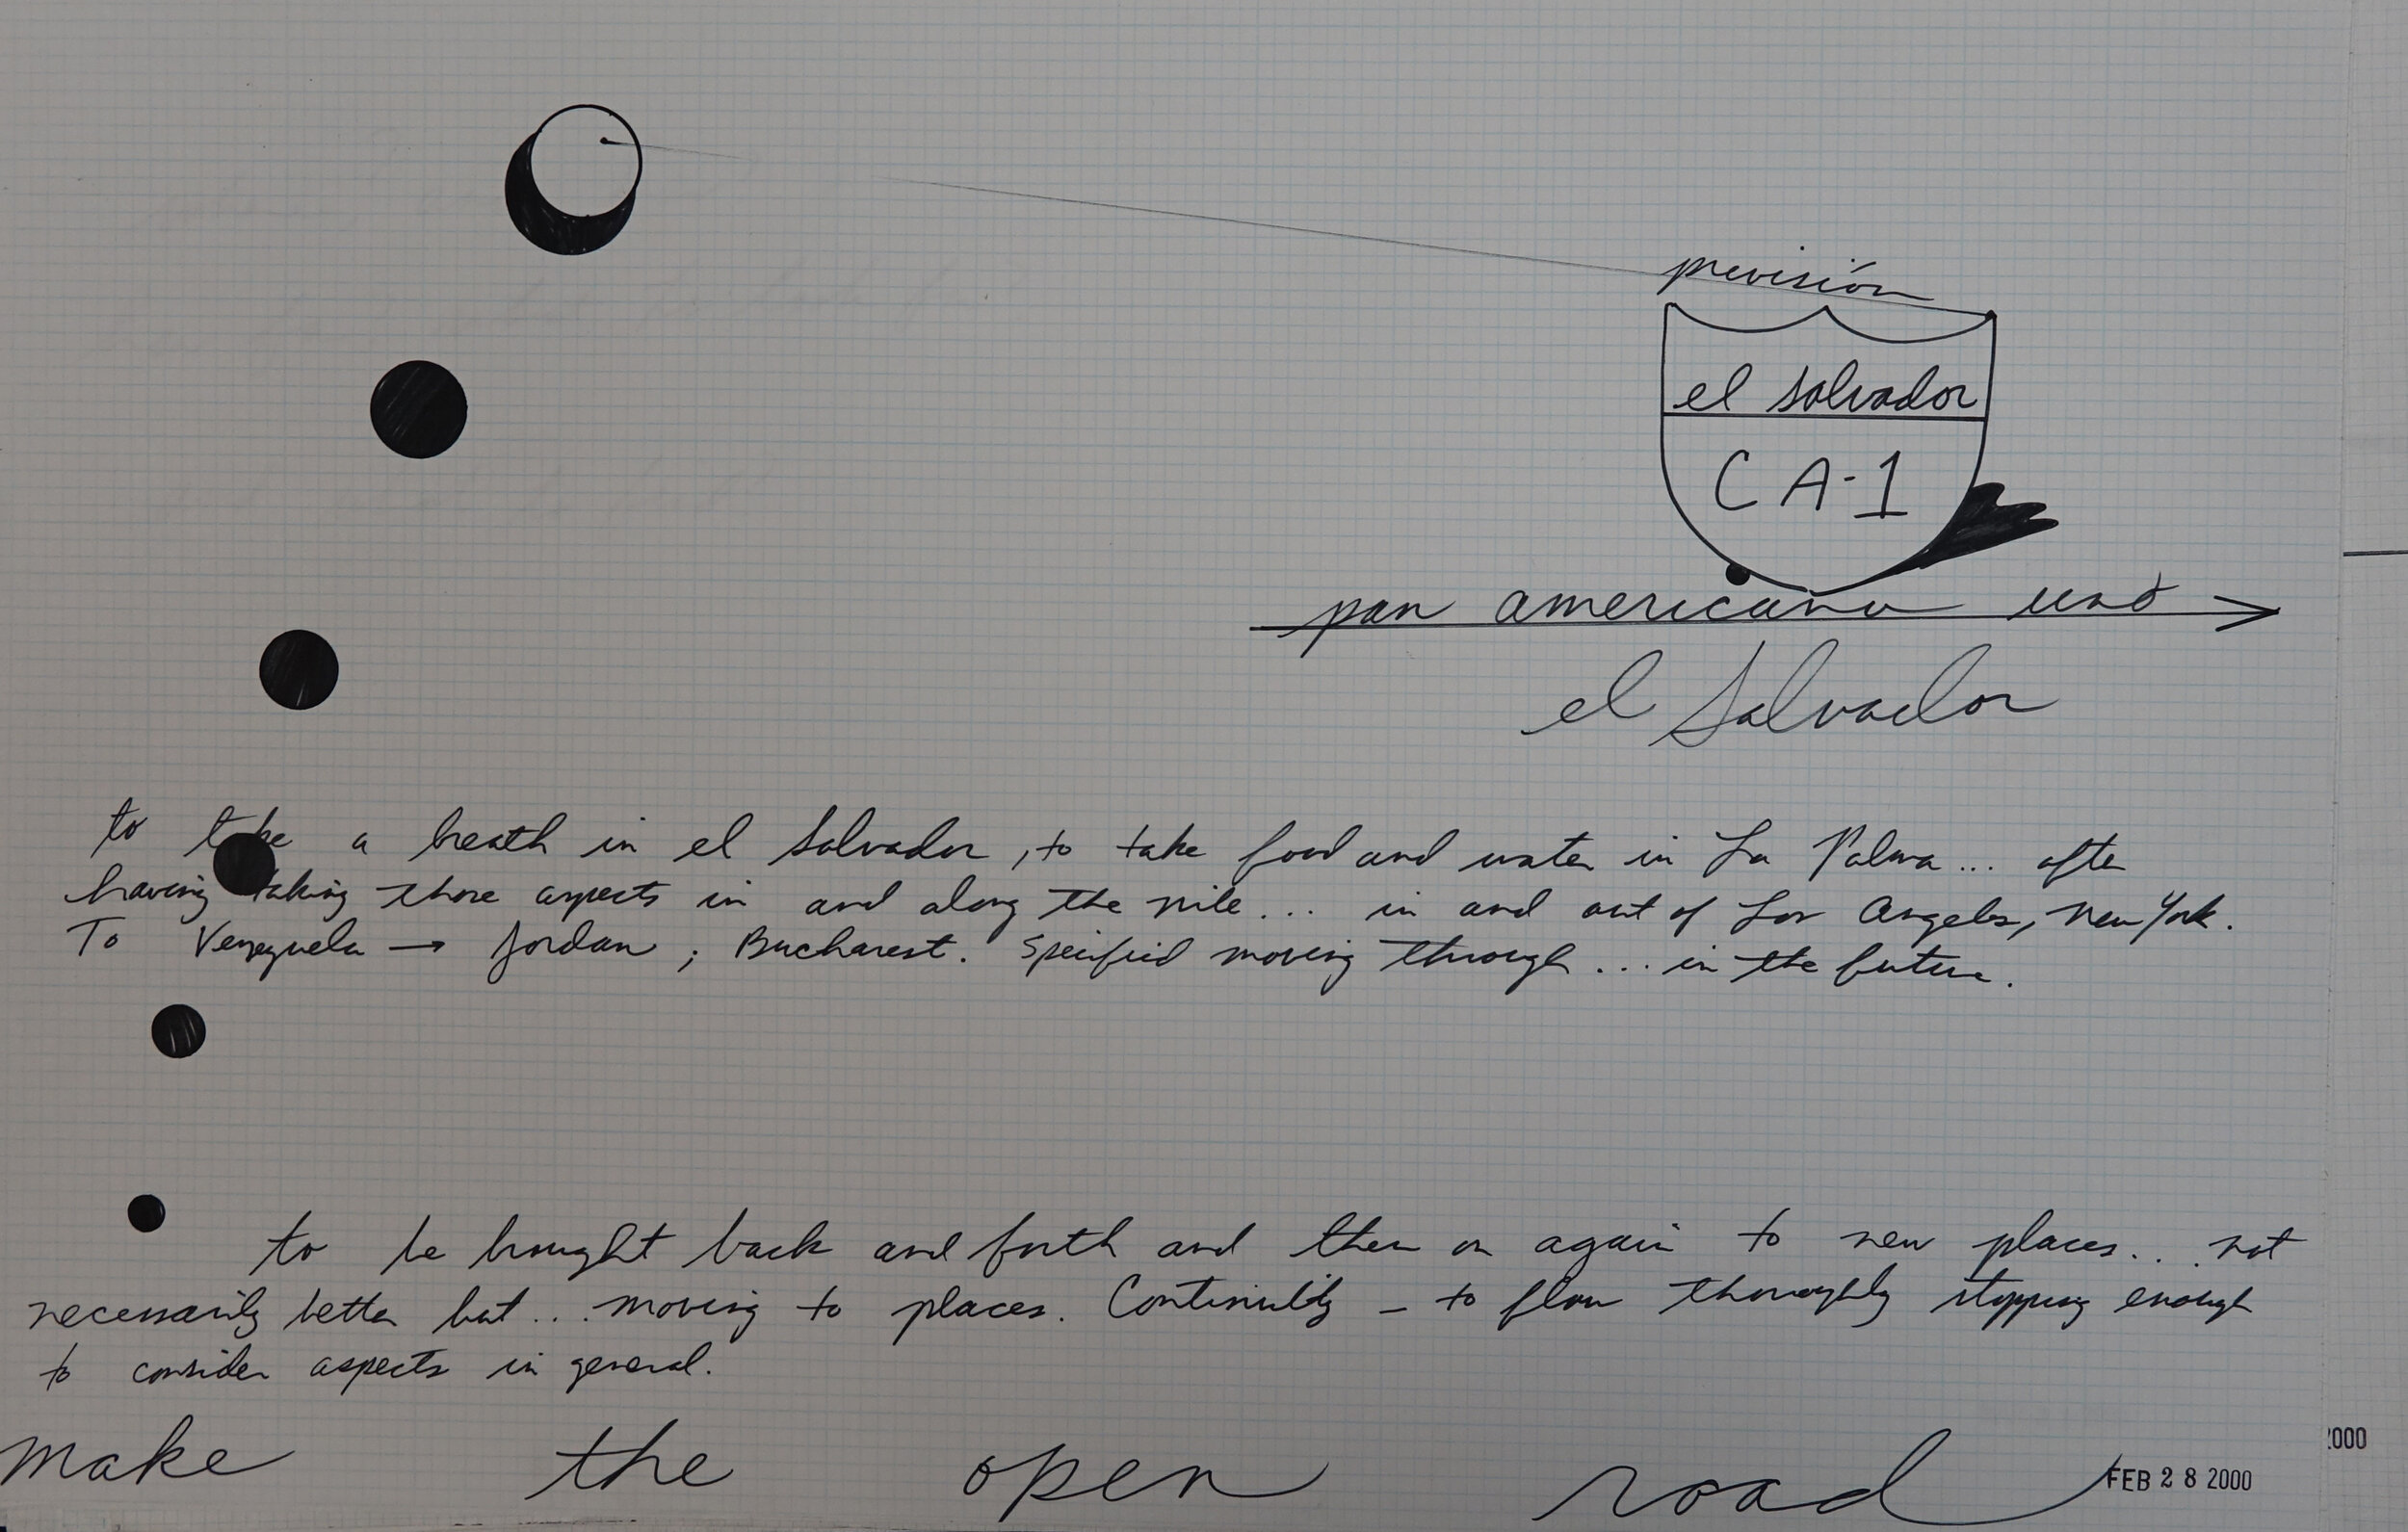 previsión
el salvador
CA-1
pan americano uno
el Salvador
to take a breath in el Salvador, to take food and water in La Palma... after
having taking those aspects in and along the nile... in and out of Los Angeles, New York.
To Venezuela → Jordan; Bucharest. Specified moving through... in the future.
to be brought back and forth and then on again to new places... not
necessarily better but... moving to places. Continuity - to flow thoroughly stopping enough
to consider aspects in general.
make the open road
FEB 28 2000
2000